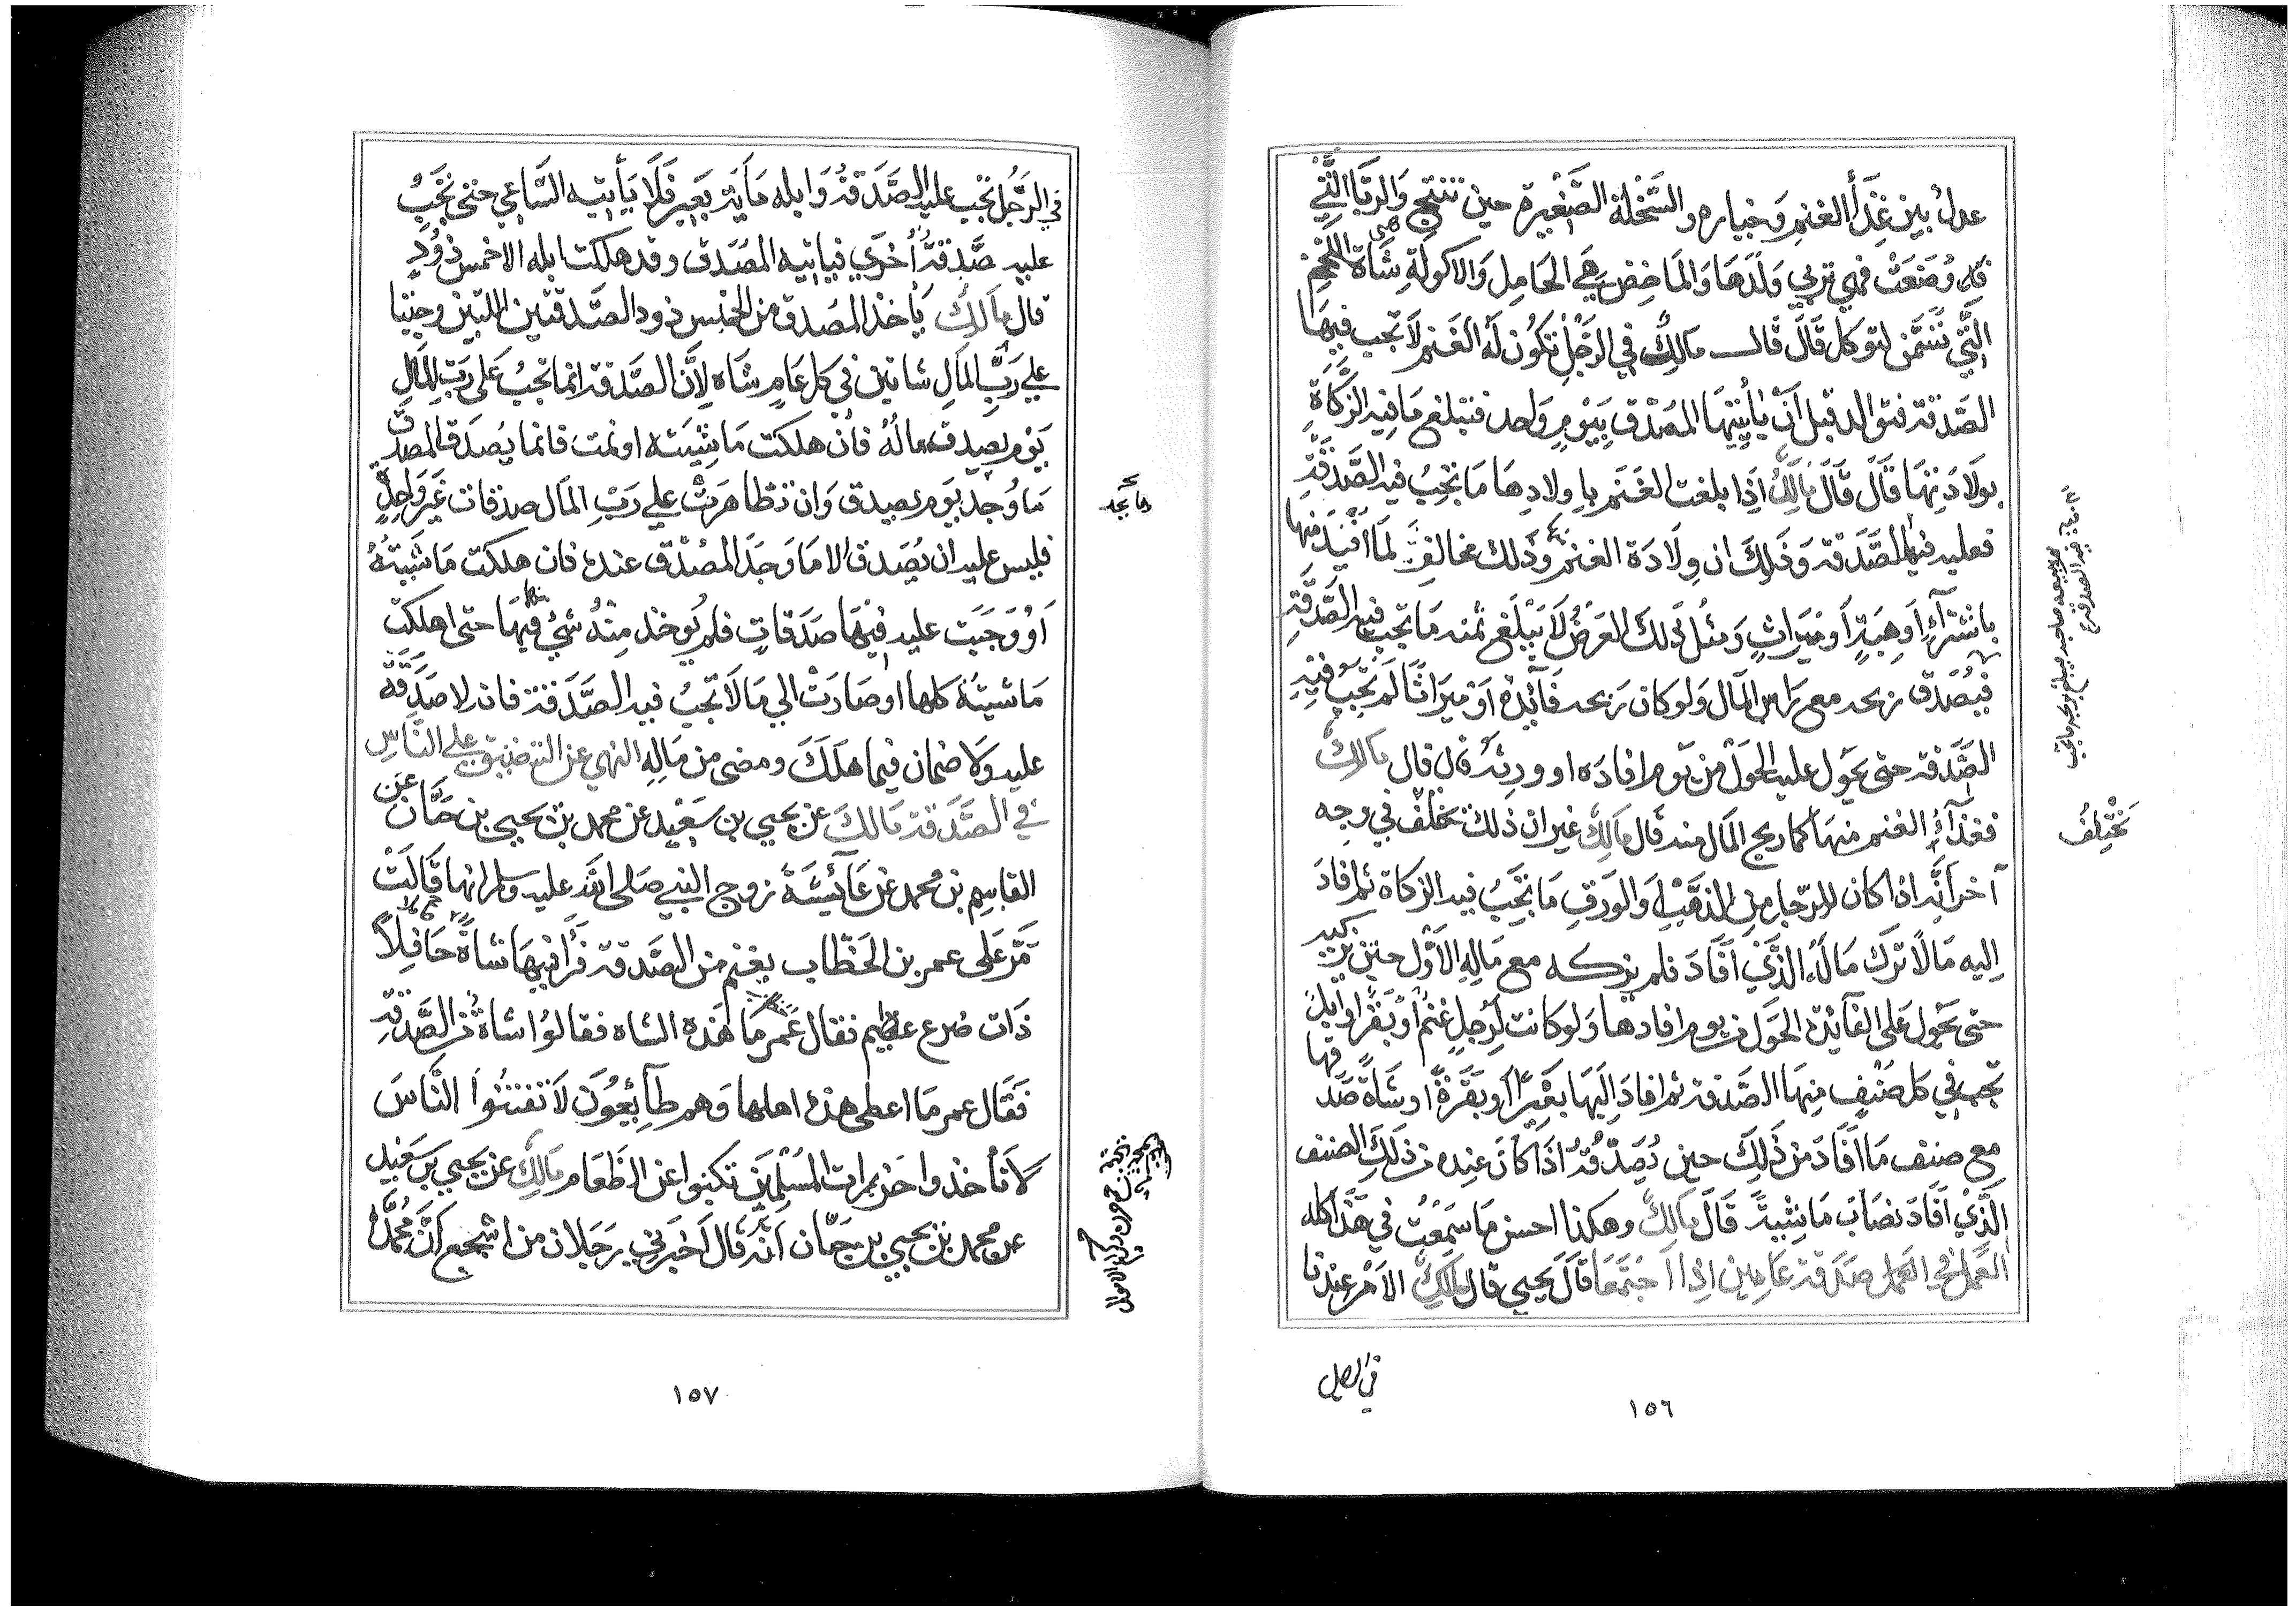 عدل بين غذأ الغنم وخياره والسخلة الصغيرة حين تنتج والربا التي
قد وضعت فهي تربي ولدها والماخض هي الحامل والاكولة هي شاة اللحم
التي تسمن لتوكل قال قال مالك في الرجل تكون له الغنم لا تجب فيها
الصدقة فتوالد قبل ان يأتيها المصدق بيوم واحد فتبلغ ما فيه الزكاة
بولادتها قال قال مالك اذا بلغت الغنم باولادها ما تجب فيه الصدقة
فعليه فيها الصدقة وذلك ان ولادة الغنم منها وذلك مخالف لما افيد منها
باشتراء او هبة او ميراث ومثل ذلك العرض لا يبلغ ثمنه ما تجب فيه الصدقة
ثم يبيعه صاحبه فيبلغ بربحه ما تجب
فيه الصدقة
فيصدق ربحه مع راس المال ولو كان ربحه فائدة او ميراثا لم تجب فيه
الصدقة حتى يحول عليه الحول من يوم افاده او ورثه قال قال مالك
فغذآء الغنم منها كما ربح المال منه قال مالك غير ان ذلك يختلف في وجه
يختلف
آخر انه اذا كان للرجل من الذهب او الورق ما تجب فيه الزكاة ثم افاد
اليه مالا ترك ماله الذي افاد فلم يزكه مع ماله الاول حين يزكيه
حتى يحول على الفآئدة الحول من يوم افادها ولو كانت لرجل غنم او بقر او ابل
تجب في كل صنف منها الصدقة ثم افاد اليها بعيرا او بقرة او شاة صدقها
مع صنف ما افاد من ذلك حين يصدقه اذا كان عنده من ذلك الصنف
الذي افاد نصاب ماشية قال مالك وهكذا احسن ما سمعت في هذا كله
العمل في صدقة عامين اذا اجتمعا قال يحيى قال مالك الامر عندنا
في الرجل
١٥٦
في الرجل تجب عليه الصدقة وابله مأية بعير فلا يأتيه الساعي حتى تجب
عليه صدقة أخرى فيأتيه المصدق وقد هلكت ابله الا خمس ذود
قال مالك يأخذ المصدق من الخمس ذود الصدقتين اللتين وجبتا
على رب المال شاتين في كل عام شاه لان الصدقة انما تجب على رب المال
يوم يصدق ماله فان هلكت ماشيته او نمت فانما يصدق المصدق
ما وجد يوم يصدق وان تظاهرت على رب المال صدقات غير واحدة
ما يجد
فليس عليه ان يصدق الا ما وجد المصدق عنده فان هلكت ماشيته
او وجبت عليه فيها صدقات فلم يؤخذ منه شئ فيها حتى اهلكت
ماشيته كلها او صارت الي ما لا تجب فيه الصدقة فانه لا صدقة
عليه ولا ضمان فيما هلك ومضى من ماله النهي عن التضييق على الناس
في الصدقة مالك عن يحيى بن سعيد عن محمد بن يحيى بن حبان عن
القاسم بن محمد عن عآئشة زوج النبي صلى الله عليه وسلم انها قالت
مر على عمر بن الخطاب بغنم من الصدقة فرأى فيها شاة حافلا
ذات ضرع عظيم فقال عمر ما هذه الشاه فقالوا شاة من الصدقة
فقال عمر ما اعطى هذه اهلها وهم طآئعون لا تفتنوا الناس
لا تأخذوا حزرات المسلمين نكبوا عن الطعام مالك عن يحيى بن سعيد
عن محمد بن يحيى بن حبان انه قال اخبرني رجلان من اشجع ان محمد
١٥٧